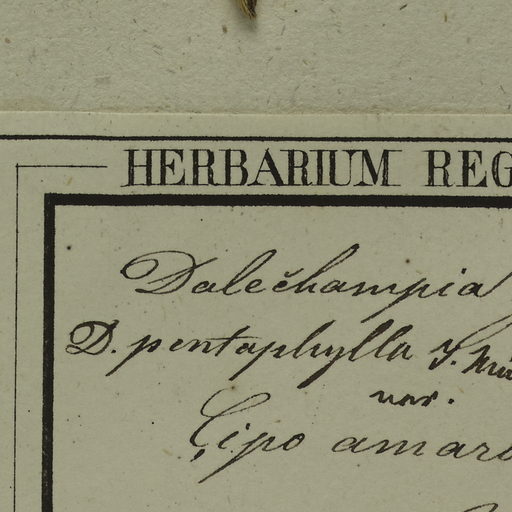 HERBARIUM REG
Dalechampia
D. pentaphylla
var.
Çipo amaro